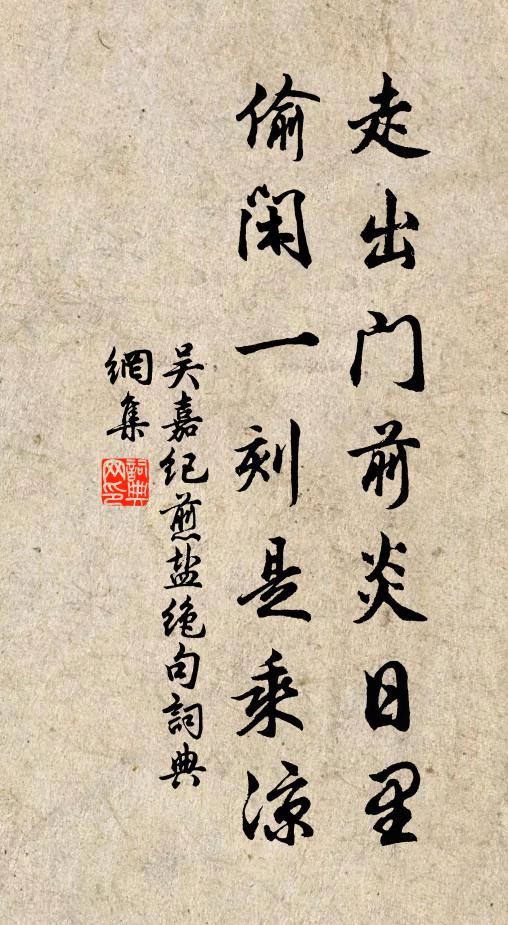 走出门前炎日里
偷闲一刻是乘凉
吴嘉纪煎盐绝句词典
網集
詞典
网印